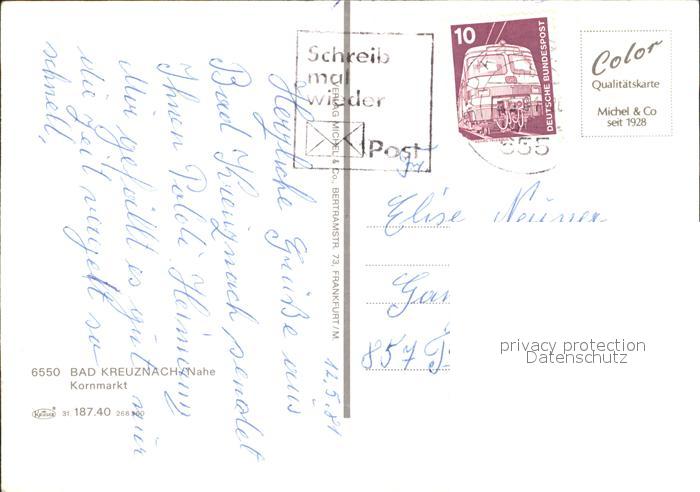 Schreib
mal
wieder
Post
10
DEUTSCHE BUNDESPOST
655
Color
Qualitätskarte
Michel & Co
seit 1928
12.5.81
Herzliche Grüße aus
Bad Kreuznach sendet
Ihnen Poldi
Mir gefällt es gut nur
die Zeit vergeht so
schnell,
VERLAG MICHEL & Co., BERTRAMSTR. 73, FRANKFURT/M.
Elise Neuner
857
privacy protection
Datenschutz
6550 BAD KREUZNACH/Nahe
Kornmarkt
31. 187.40